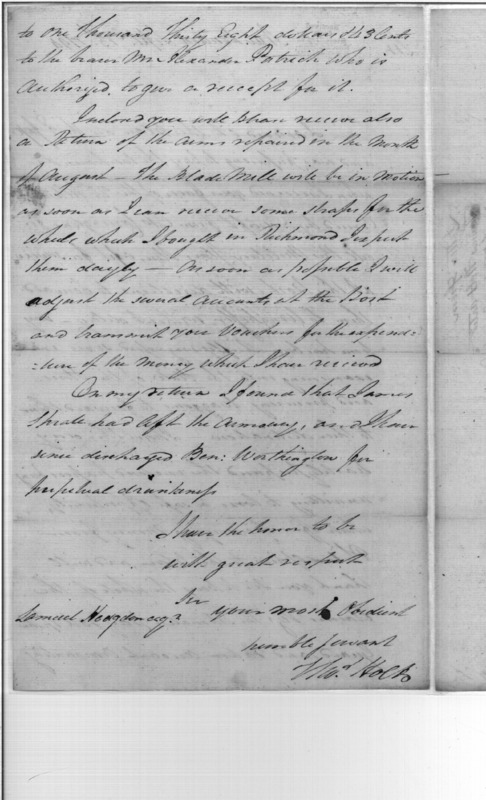 to one Thousand Thirty Eight dollars & 43 Cents
to the bearer Mr Alexander Patrick who is
authorized to give a receipt for it.
Inclosed you will please receive also
a Return of the arms repaired in the Month
of August — The Blade Mill will be in Motion
as soon as I can receive some straps for the
wheels which I bought in Richmond I expect
them dayly — As soon as possible I will
adjust the several accounts at the Post
and transmit you Vouchers for the expendi-
:ture of the money which I have received
On my return I found that James
had left the Armoury, and I have
since discharged Ben: Worthington for
perpetual drunkenness
I have the honor to be
with great respect
Sir
Samuel Hodgdon esqr your most Obedient
humble servant